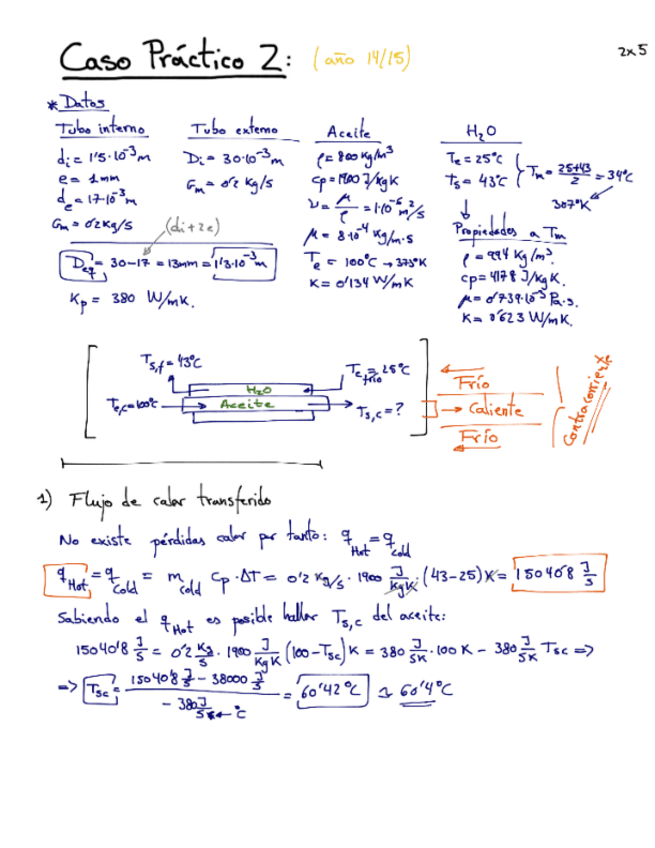 Caso Práctico 2: (año 14/15)
2x5
* Datos
Tubo interno
di = 1'5·10⁻³ m
e = 1 mm
de = 17·10⁻³ m
Gm = 0'2 kg/s
(di+2e)
Deq = 30-17 = 13mm = 1'3·10⁻³ m
Kp = 380 W/mK.
Tubo externo
Di = 30·10⁻³ m
Gm = 0'2 kg/s
Aceite
ρ = 800 kg/m³
cp = 1900 J/kgK
ν = μ/ρ = 1·10⁻⁶ m²/s
μ = 8·10⁻⁴ kg/m·s
Te = 100°C → 373°K
K = 0'134 W/mK
H₂O
Te = 25°C
Ts = 43°C
Tm = (25+43)/2 = 34°C
307°K
Propiedades a Tm
ρ = 994 kg/m³.
cp = 4178 J/kgK.
μ = 0'734·10⁻³ Pa·s.
K = 0'623 W/mK.
Ts,f = 43°C
Te,frio = 25°C
H₂O
Te,c = 100°C
Aceite
Ts,c = ?
Frío
Caliente
Frío
Contracorriente
1) Flujo de calor transferido
No existe pérdidas calor por tanto: qHot = qcold
qHot = qcold = mcold Cp·ΔT = 0'2 kg/s · 1900 J/kgK · (43-25)K = 15040'8 J/s
Sabiendo el qHot es posible hallar Ts,c del aceite:
15040'8 J/s = 0'2 kg/s · 1900 J/kgK (100-Tsc)K = 380 J/sK · 100K - 380 J/sK Tsc =>
=> Tsc = (15040'8 J/s - 38000 J/s) / (-380 J/sK ← °C) = 60'42°C ≃ 60'4°C